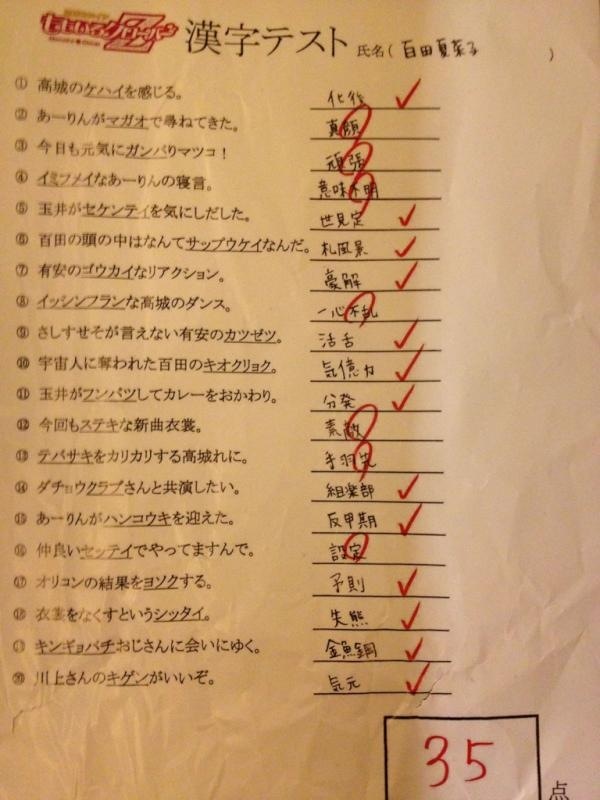 ももいろクローバーZ 漢字テスト 氏名( 百田夏菜子 )
① 高城のケハイを感じる。 化後
② あーりんがマガオで尋ねてきた。 真顔
③ 今日も元気にガンバりマツコ！ 頑張
④ イミフメイなあーりんの寝言。 意味不明
⑤ 玉井がセケンテイを気にしだした。 世見定
⑥ 百田の頭の中はなんてサップウケイなんだ。 札風景
⑦ 有安のゴウカイなリアクション。 豪解
⑧ イッシンフランな高城のダンス。 一心不乱
⑨ さしすせそが言えない有安のカツゼツ。 活舌
⑩ 宇宙人に奪われた百田のキオクリョク。 気億力
⑪ 玉井がフンパツしてカレーをおかわり。 分発
⑫ 今回もステキな新曲衣裳。 素敵
⑬ テバサキをカリカリする高城れに。 手羽先
⑭ ダチョウクラブさんと共演したい。 組楽部
⑮ あーりんがハンコウキを迎えた。 反甲期
⑯ 仲良いセッテイでやってますんで。 設定
⑰ オリコンの結果をヨソクする。 予則
⑱ 衣裳をなくすというシッタイ。 失熊
⑲ キンギョバチおじさんに会いにゆく。 金魚鋼
⑳ 川上さんのキゲンがいいぞ。 気元
35 点